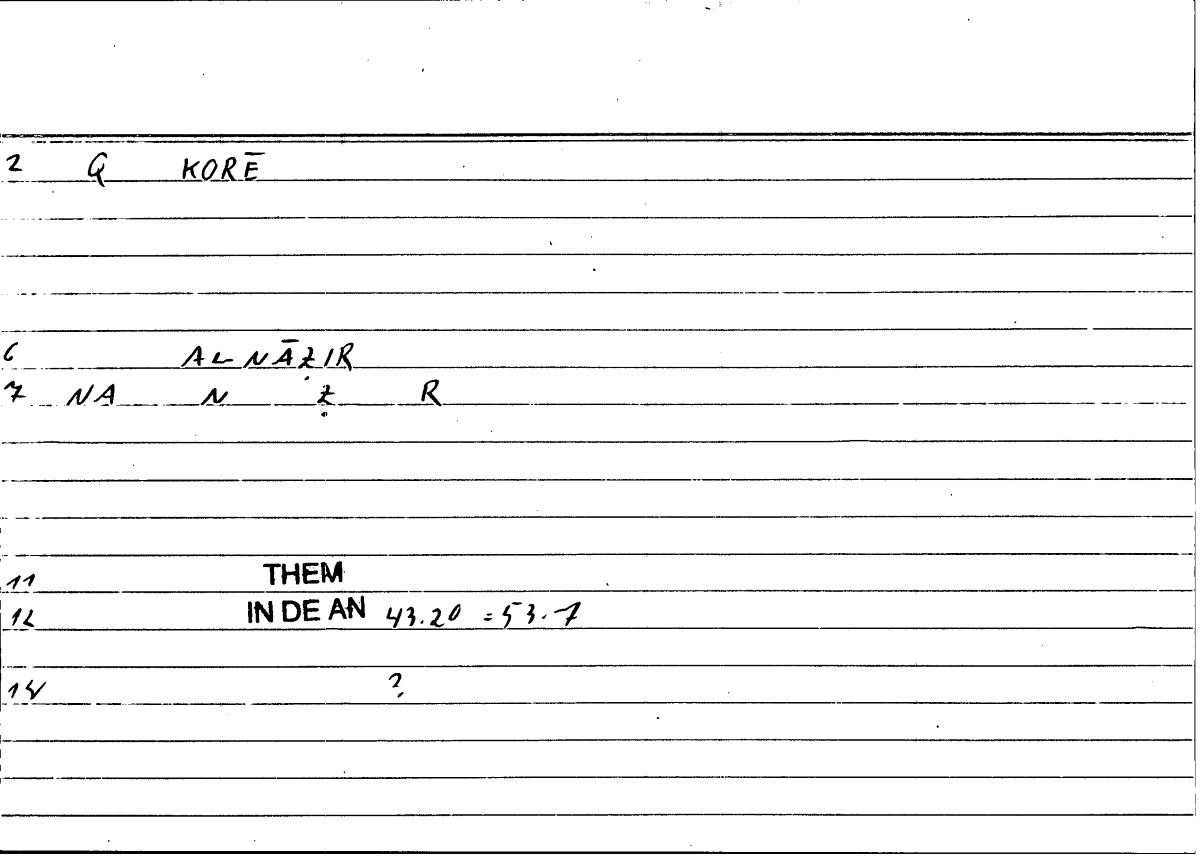 2 Q KORĒ
6 ALNĀẒIR
7 NA N Ẓ R
11 THEM
12 IN DE AN 43.20 = 53.7
14 ?